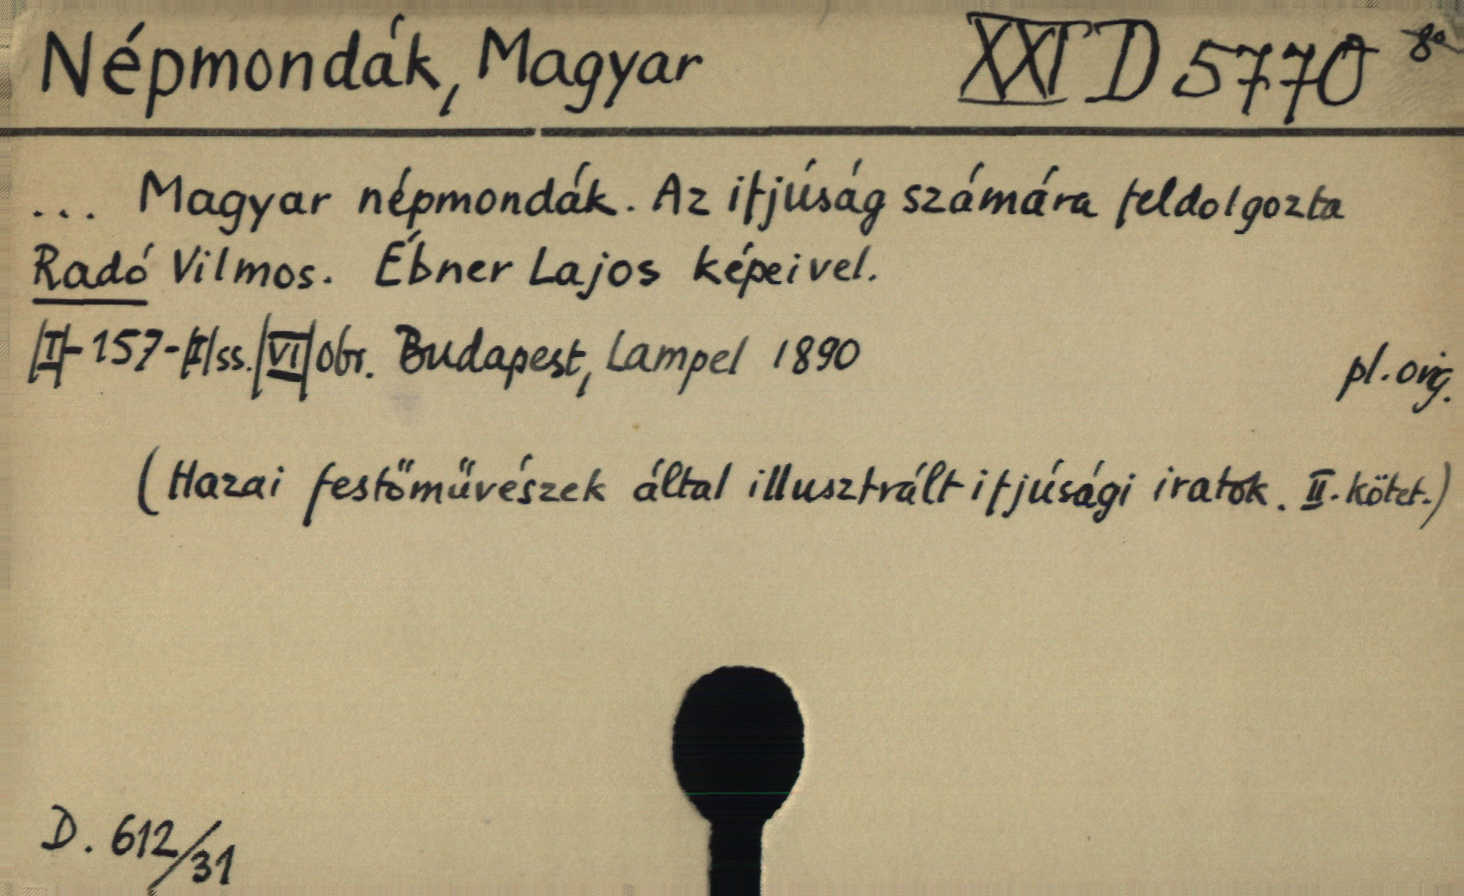 Népmondák, Magyar XXI D 5770 8°
... Magyar népmondák. Az ifjúság számára feldolgozta
Radó Vilmos. Ébner Lajos képeivel.
|I|-157-|I|ss.|VI|obr. Budapest, Lampel 1890 pl. orig.
(Hazai festőművészek által illusztrált ifjúsági iratok. II. kötet.)
D. 612/31